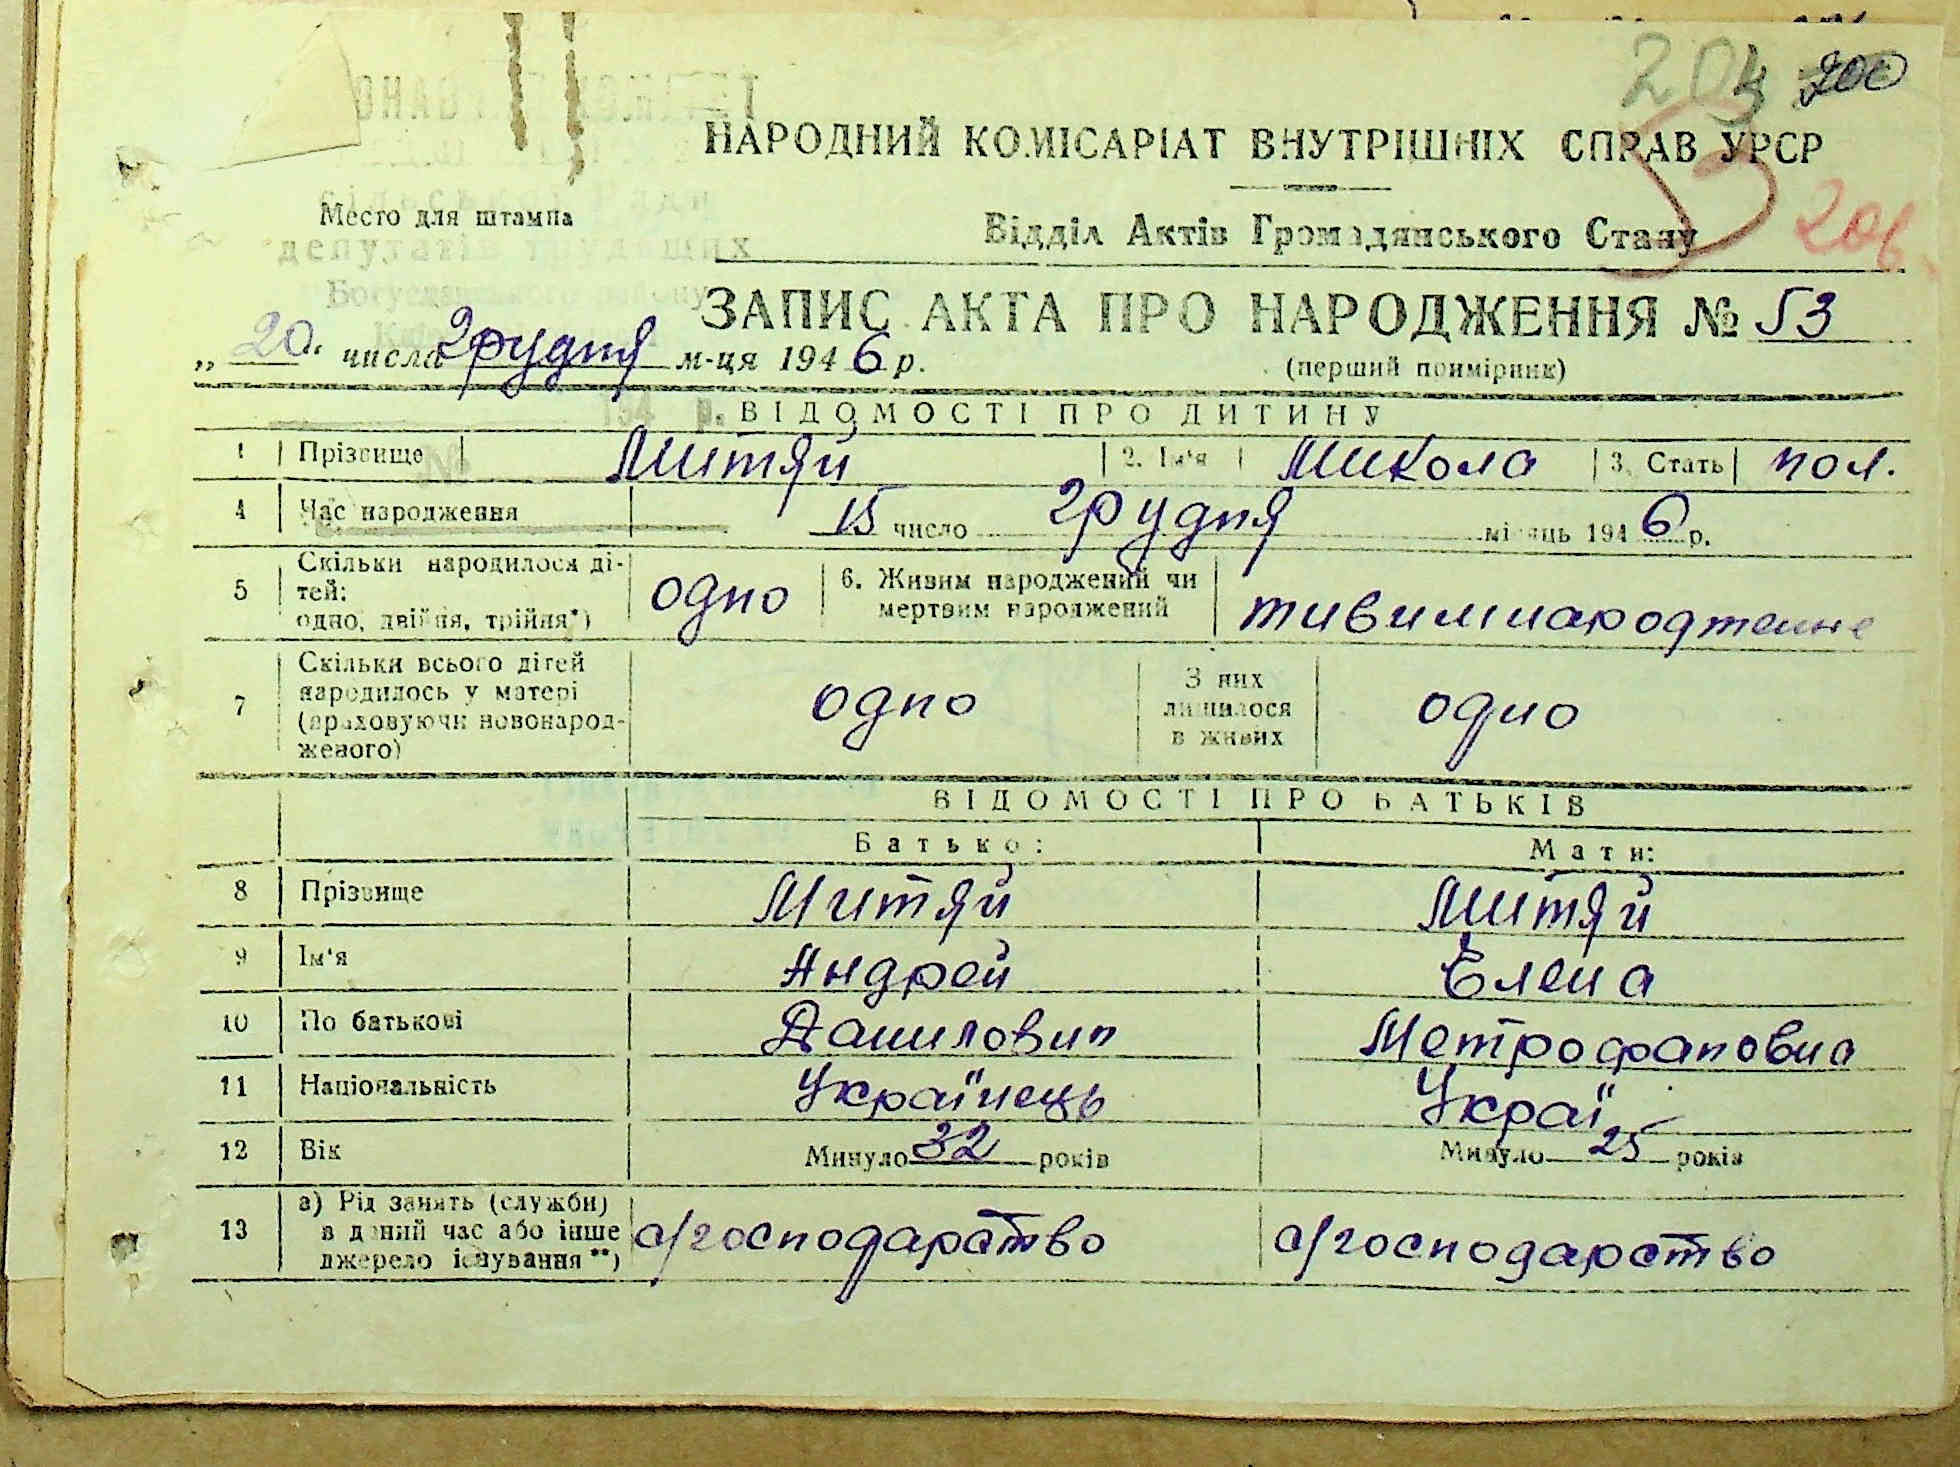 200
206
НАРОДНИЙ КОМІСАРІАТ ВНУТРІШНІХ СПРАВ УРСР
Место для штампа
Відділ Актів Громадянського Стану
ЗАПИС АКТА ПРО НАРОДЖЕННЯ № 53
„ 20 “ числа грудня м-ця 1946 р.
(перший примірник)
ВІДОМОСТІ ПРО ДИТИНУ
1 Прізвище Митяй 2. Ім'я Микола 3. Стать чол.
4 Час народження 15 число грудня місяць 1946 р.
5 Скільки народилося ді-
тей:
одно, двійня, трійня*) одно 6. Живим народжений чи
мертвим народжений живимнародженне
7 Скільки всього дітей
народилось у матері
(враховуючи новонарод-
женого) одно З них
лишилося
в живих одно
ВІДОМОСТІ ПРО БАТЬКІВ
Батько: Мати:
8 Прізвище Митяй Митяй
9 Ім'я Андрей Елена
10 По батькові Данилович Метрофановна
11 Національність Українець Украї
12 Вік Минуло 32 років Минуло 25 років
13 а) Рід занять (служби)
в даний час або інше
джерело існування**) с/господарство с/господарство